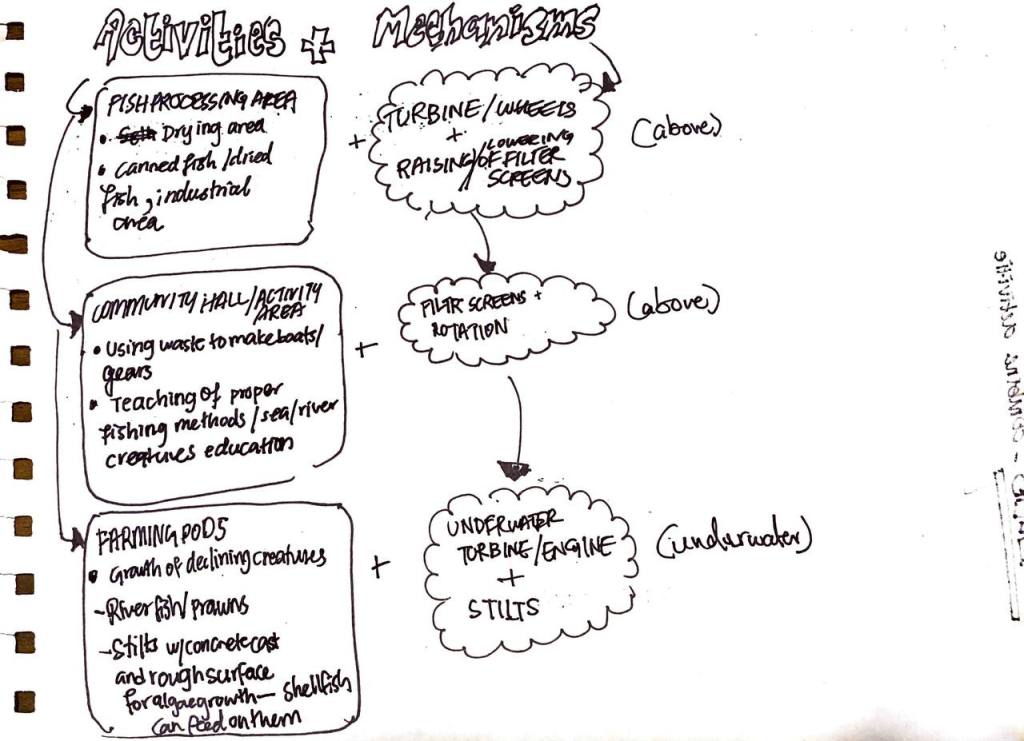 Activities + Mechanisms
FISH PROCESSING AREA
• Drying area
• Canned fish/dried
fish, industrial
area
+
TURBINE/WHEELS
+
RAISING/LOWERING
OF FILTER
SCREENS
(above)
COMMUNITY HALL/ACTIVITY
AREA
• Using waste to make boats/
gears
• Teaching of proper
fishing methods/sea/river
creatures education
+
FILTR SCREENS +
ROTATION
(above)
FARMING PODS
• Growth of declining creatures
- River fish/prawns
- Stilts w/concrete cast
and rough surface
for algae growth — shellfish
can feed on them
+
UNDERWATER
TURBINE/ENGINE
+
STILTS
(underwater)